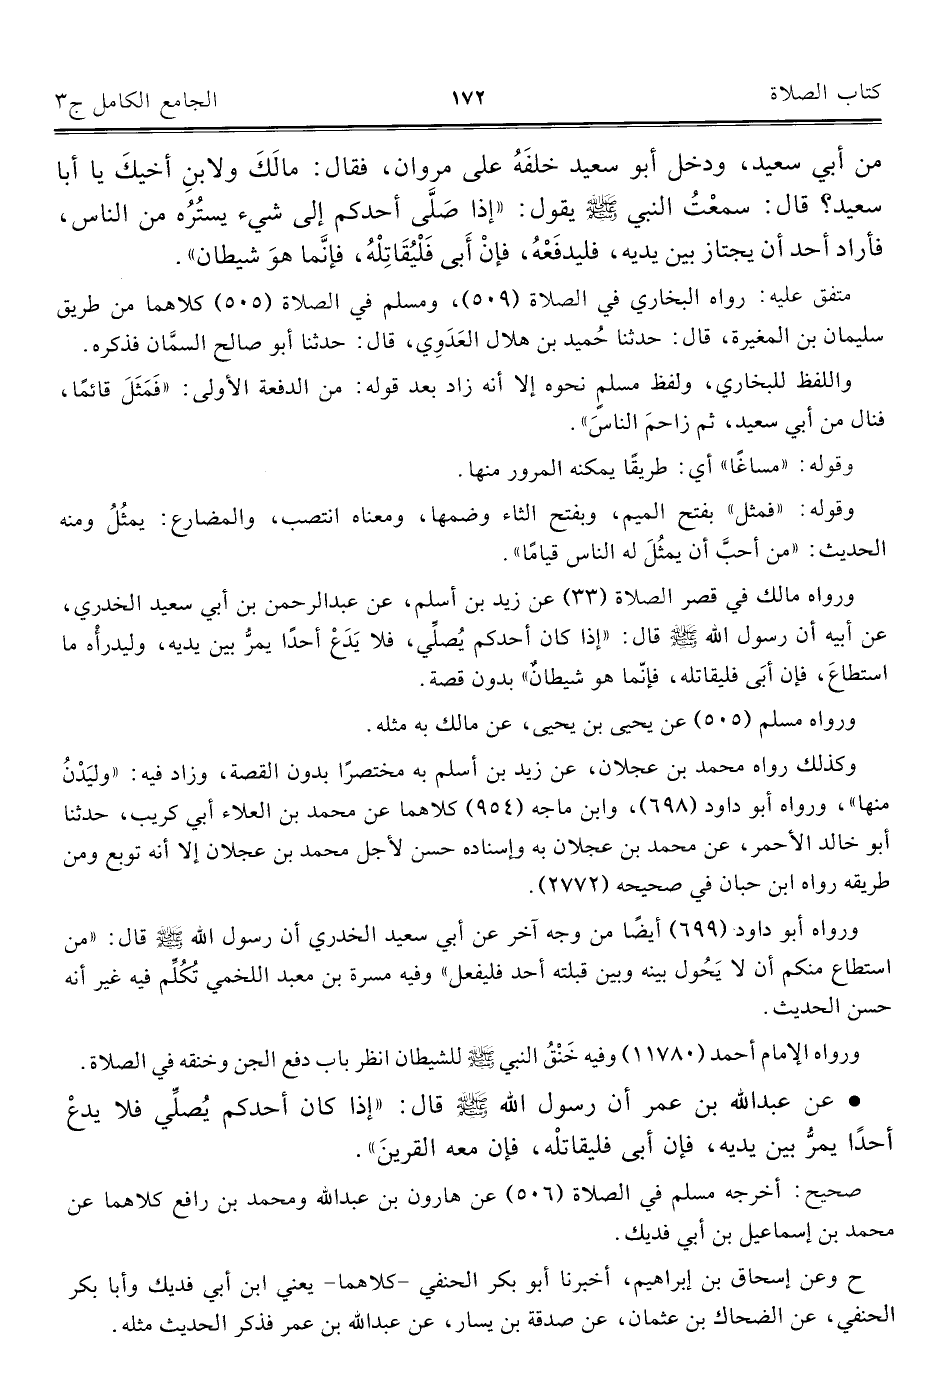 كتاب الصلاة ١٧٢ الجامع الكامل ج٣
من أبي سعيد، ودخل أبو سعيد خلفَهُ على مروان، فقال: مالَكَ ولابنِ أخيكَ يا أبا
سعيد؟ قال: سمعْتُ النبي ﷺ يقول: «إذا صَلَّى أحدكم إلى شيء يستُرُه من الناس،
فأراد أحد أن يجتاز بين يديه، فليدفَعْهُ، فإنْ أَبى فَلْيُقَاتِلْهُ، فإنَّما هوَ شيطان».
متفق عليه: رواه البخاري في الصلاة (٥٠٩)، ومسلم في الصلاة (٥٠٥) كلاهما من طريق
سليمان بن المغيرة، قال: حدثنا حُميد بن هلال العَدَوِي، قال: حدثنا أبو صالح السمَّان فذكره.
واللفظ للبخاري، ولفظ مسلم نحوه إلا أنه زاد بعد قوله: من الدفعة الأولى: «فَمَثَلَ قائمًا،
فنال من أبي سعيد، ثم زاحمَ الناسَ».
وقوله: «مساغًا» أي: طريقًا يمكنه المرور منها.
وقوله: «فمثل» بفتح الميم، وبفتح الثاء وضمها، ومعناه انتصب، والمضارع: يمثُلُ ومنه
الحديث: «من أحبَّ أن يمثُلَ له الناس قيامًا».
ورواه مالك في قصر الصلاة (٣٣) عن زيد بن أسلم، عن عبدالرحمن بن أبي سعيد الخدري،
عن أبيه أن رسول الله ﷺ قال: «إذا كان أحدكم يُصلِّي، فلا يَدَعْ أحدًا يمرُّ بين يديه، وليدرأْه ما
استطاعَ، فإن أبَى فليقاتله، فإنّما هو شيطانٌ» بدون قصة.
ورواه مسلم (٥٠٥) عن يحيى بن يحيى، عن مالك به مثله.
وكذلك رواه محمد بن عجلان، عن زيد بن أسلم به مختصرًا بدون القصة، وزاد فيه: «وليَدْنُ
منها»، ورواه أبو داود (٦٩٨)، وابن ماجه (٩٥٤) كلاهما عن محمد بن العلاء أبي كريب، حدثنا
أبو خالد الأحمر، عن محمد بن عجلان به وإسناده حسن لأجل محمد بن عجلان إلا أنه توبع ومن
طريقه رواه ابن حبان في صحيحه (٢٧٧٢).
ورواه أبو داود (٦٩٩) أيضًا من وجه آخر عن أبي سعيد الخدري أن رسول الله ﷺ قال: «من
استطاع منكم أن لا يَحُول بينه وبين قبلته أحد فليفعل» وفيه مسرة بن معبد اللخمي تُكُلِّم فيه غير أنه
حسن الحديث.
ورواه الإمام أحمد (١١٧٨٠) وفيه خَنْقُ النبي ﷺ للشيطان انظر باب دفع الجن وخنقه في الصلاة.
• عن عبدالله بن عمر أن رسول الله ﷺ قال: «إذا كان أحدكم يُصلِّي فلا يدعْ
أحدًا يمرُّ بين يديه، فإن أبى فليقاتلْه، فإن معه القرينَ».
صحيح: أخرجه مسلم في الصلاة (٥٠٦) عن هارون بن عبدالله ومحمد بن رافع كلاهما عن
محمد بن إسماعيل بن أبي فديك.
ح وعن إسحاق بن إبراهيم، أخبرنا أبو بكر الحنفي -كلاهما- يعني ابن أبي فديك وأبا بكر
الحنفي، عن الضحاك بن عثمان، عن صدقة بن يسار، عن عبدالله بن عمر فذكر الحديث مثله.